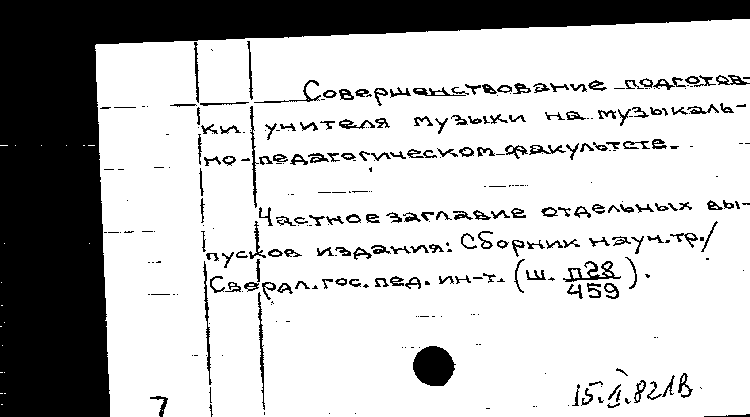 Совершенствование подготов-
ки учителя музыки на музыкаль-
но-педагогическом факультете.
Частное заглавие отдельных вы-
пусков издания: Сборник науч.тр./
Свердл.гос.пед.ин-т. (ш. П28/459).
7